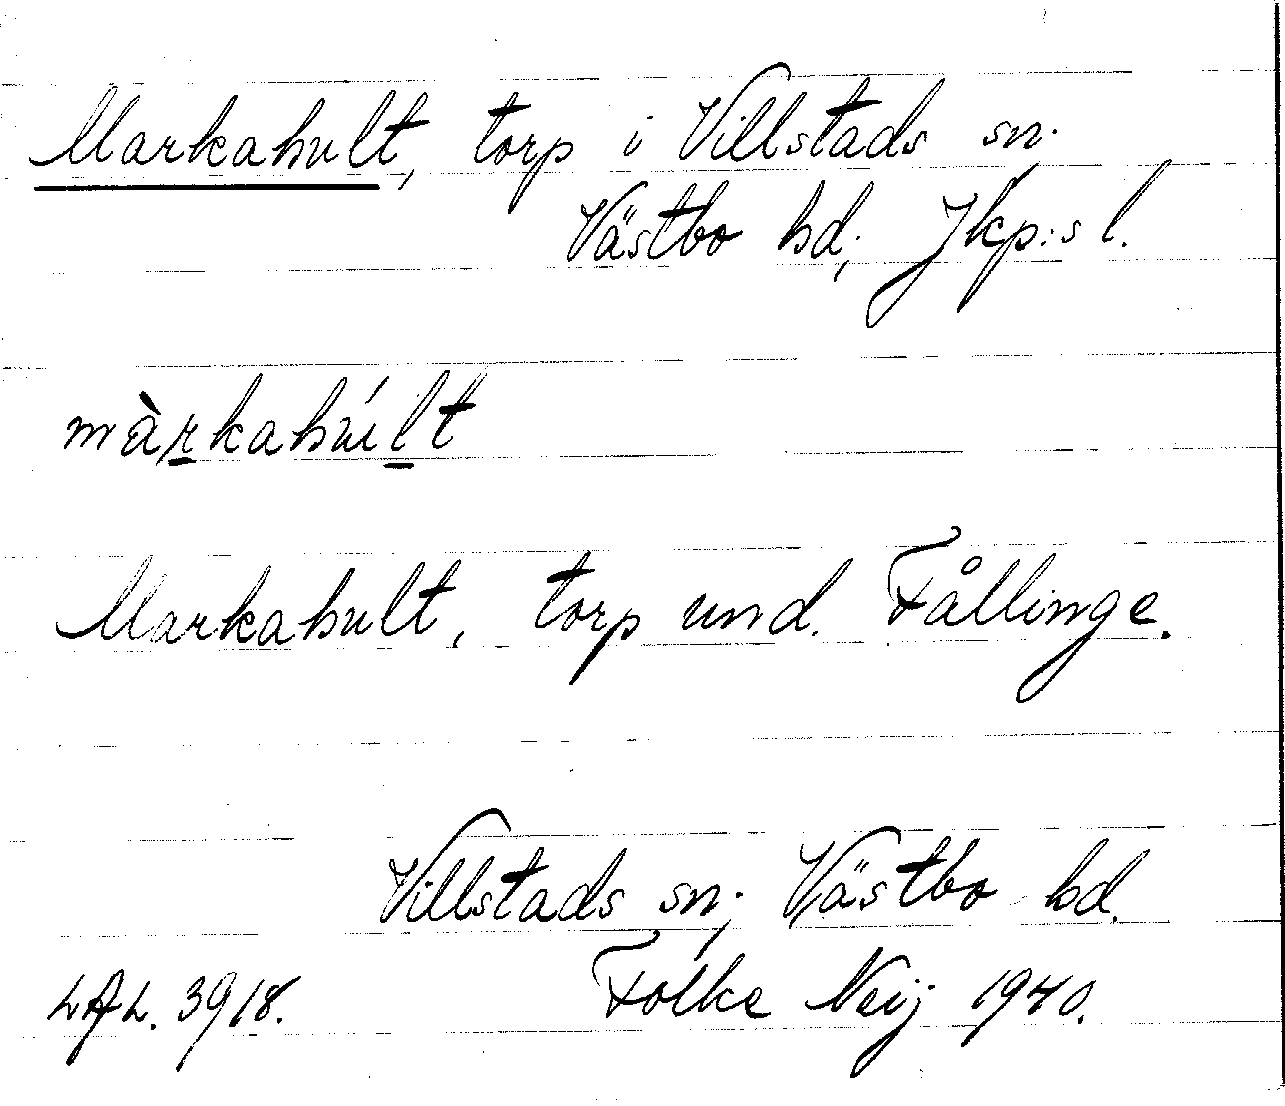 Markahult, torp i Villstads sn.
Västbo hd, Jkp:s l.
màrkahúlt
Markahult, torp und. Fållinge.
Villstads sn; Västbo hd.
LAL. 3918. Folke Neij 1940.